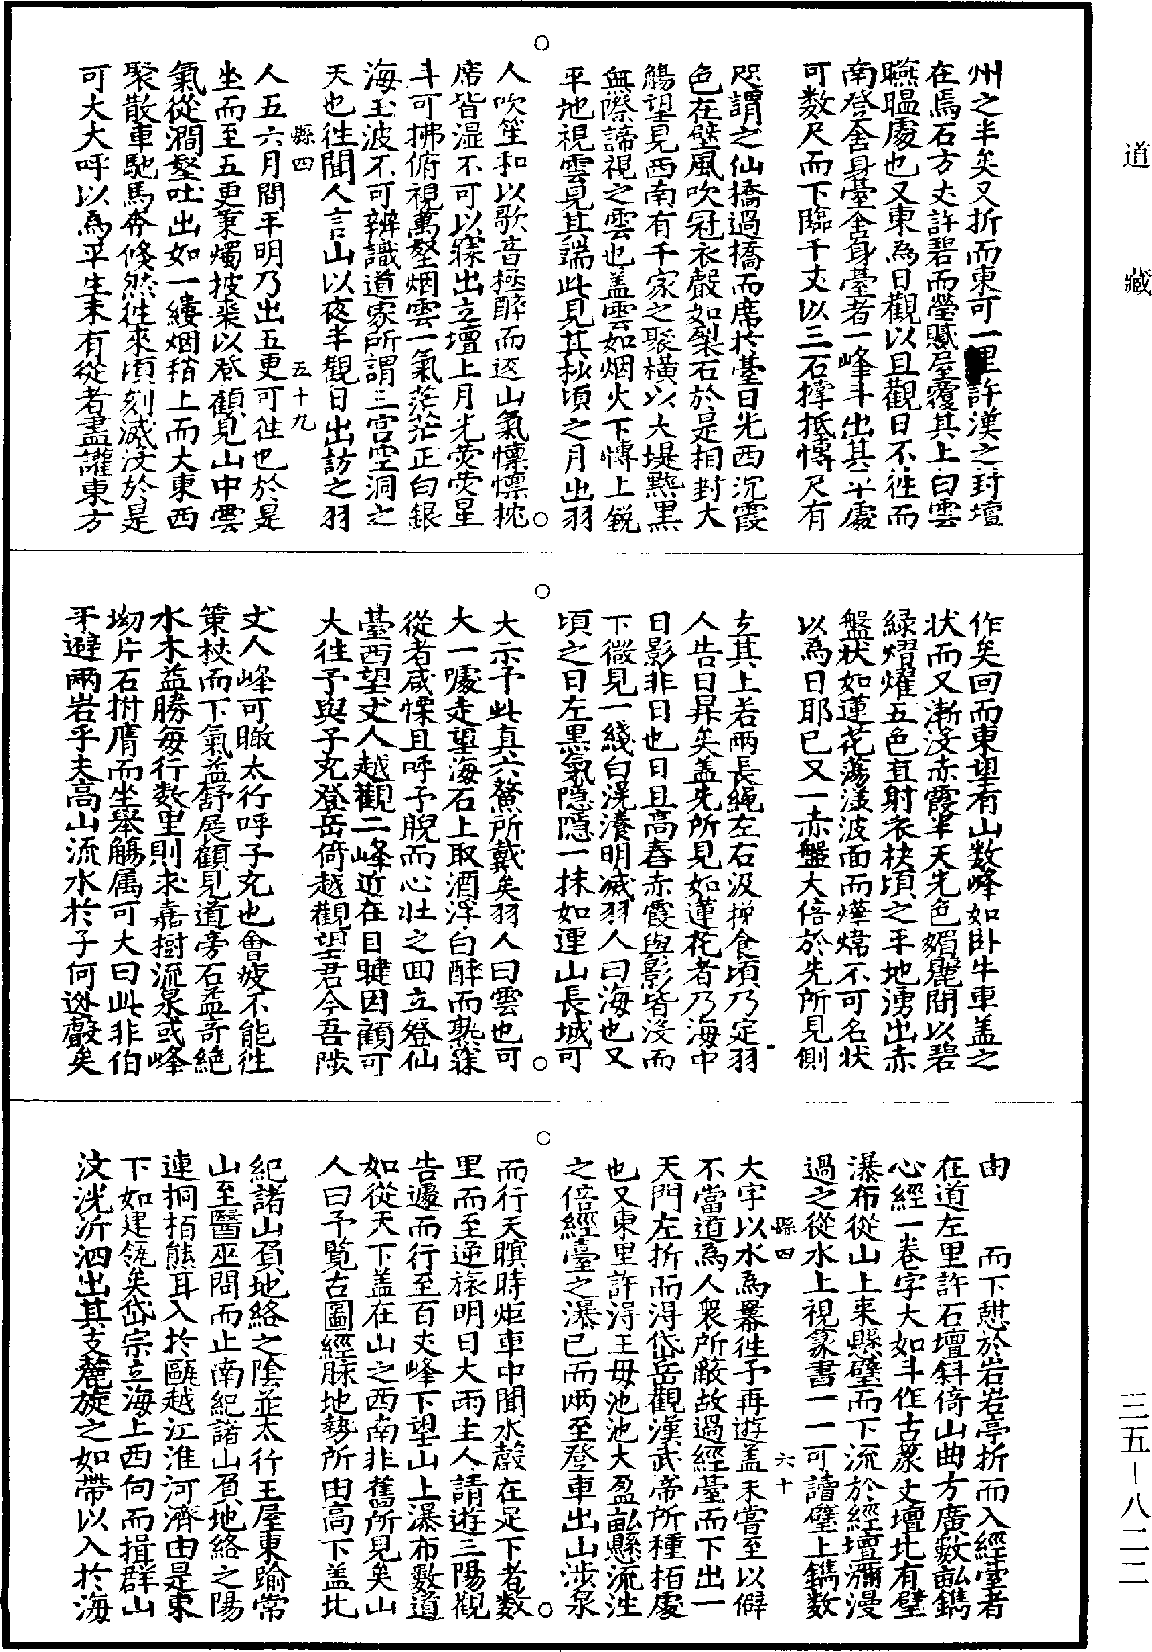 道藏
州之半矣又折而東可一里許漢之封壇
在焉石方丈許碧而瑩膩屋覆其上曰雲
曣㬈處也又東為日觀以且觀日不徃而
南登舍身臺舍身臺者一峰斗出其平處
可數尺而下臨千丈以三石撐抵愽尺有
咫謂之仙橋過橋而席於臺日先西沉霞
色在壁風吹冠衣聲如裂石於是相封大
觴望見西南有千家之聚橫以大堤黟黑
無際諦視之雲也盖雲如烟火下愽上銳
平地視雲見其端此見其秋頃之月出羽
人吹笙和以歌音極酣而返山氣懍懍枕
席皆湿不可以寐出立壇上月光熒熒星
斗可拂俯視萬壑烟雲一氣茫茫正白銀
海玉波不可辨識道家所謂三宫空洞之
天也徃聞人言山以夜半觀日出訪之羽
縣四　五十九
人五六月間平明乃出五更可徃也於是
坐而至五更秉燭披裘以登顧見山中雲
氣從澗壑吐出如一縷烟稍上而大東西
聚散車馳馬奔倏然徃來頃刻滅沒於是
可大大呼以為平生未有從者盡讙東方
作矣回而東望有山數峰如卧牛車盖之
狀而又漸沒赤霞半天光色媚麗間以碧
綠熠燿五色直射衣袂頃之平地湧出赤
盤狀如蓮花蕩漾波面而燁煒不可名状
以為日耶已又一赤盤大倍於先所見側
立其上若兩長繩左右汲挽食頃乃定羽
人告曰昇矣盖先所見如蓮花者乃海中
日影非日也日且高舂赤霞與影皆沒而
下微見一綫白滉瀁明滅羽人曰海也又
頃之日左黑氣隱隱一抹如連山長城可
大示予此真六鰲所戴矣羽人曰雲也可
大一噱走望海石上取酒浮白醉而熟寐
從者咸慄且呼予脫而心壯之回立登仙
臺西望丈人越觀二峰近在目睫因顧可
大徃予與子充登岳倚越觀望君今吾陟
丈人峰可瞰太行呼子充也會疲不能徃
策杖而下氣益舒展顧見道旁石益奇絕
水木益勝每行數里則求嘉樹流泉或峰
坳片石拊膺而坐舉觴属可大曰此非伯
牙避雨岩乎夫高山流水於子何逊聲矣
由　而下憇於岩岩亭折而入經臺者
在道左里許石壇斜倚山曲方廣數畝鐫
心經一卷字大如斗作古篆丈壇比有壁
瀑布從山上来懸壁而下流於經壇瀰漫
過之從水上視篆書一一可讀壁上鐫數
縣四　六十
大字以水為畧徃予再遊盖未嘗至以僻
不當道為人衆所蔽故過經臺而下出一
天門左折而得岱岳觀漢武帝所種栢處
也又東里許得王母池池大盈畝懸流注
之倍經臺之瀑已而雨至登車出山涉泉
而行天瞑時炬車中聞水聲在足下者數
里而至逆旅明日大雨主人請遊三陽觀
告遽而行至百丈峰下望山上瀑布數道
如從天下盖在山之西南非舊所見矣山
人曰予覽古圖經脉地勢所由高下盖北
紀諸山負地絡之陰並太行王屋東踰常
山至醫巫閭而止南紀諸山負地絡之陽
連桐栢熊耳入於甌越江淮河濟由是東
下如建瓴矣岱宗立海上西向而揖群山
汶洸沂泗出其支麓旋之如帶以入於海
三五－八二二